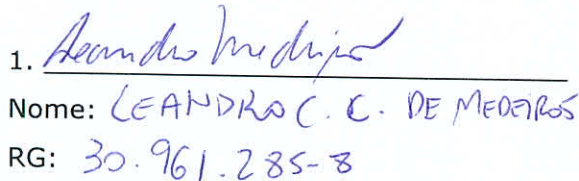 1. Leandro Medeiros
Nome: LEANDRO C. C. DE MEDEIROS
RG: 30.961.285-8